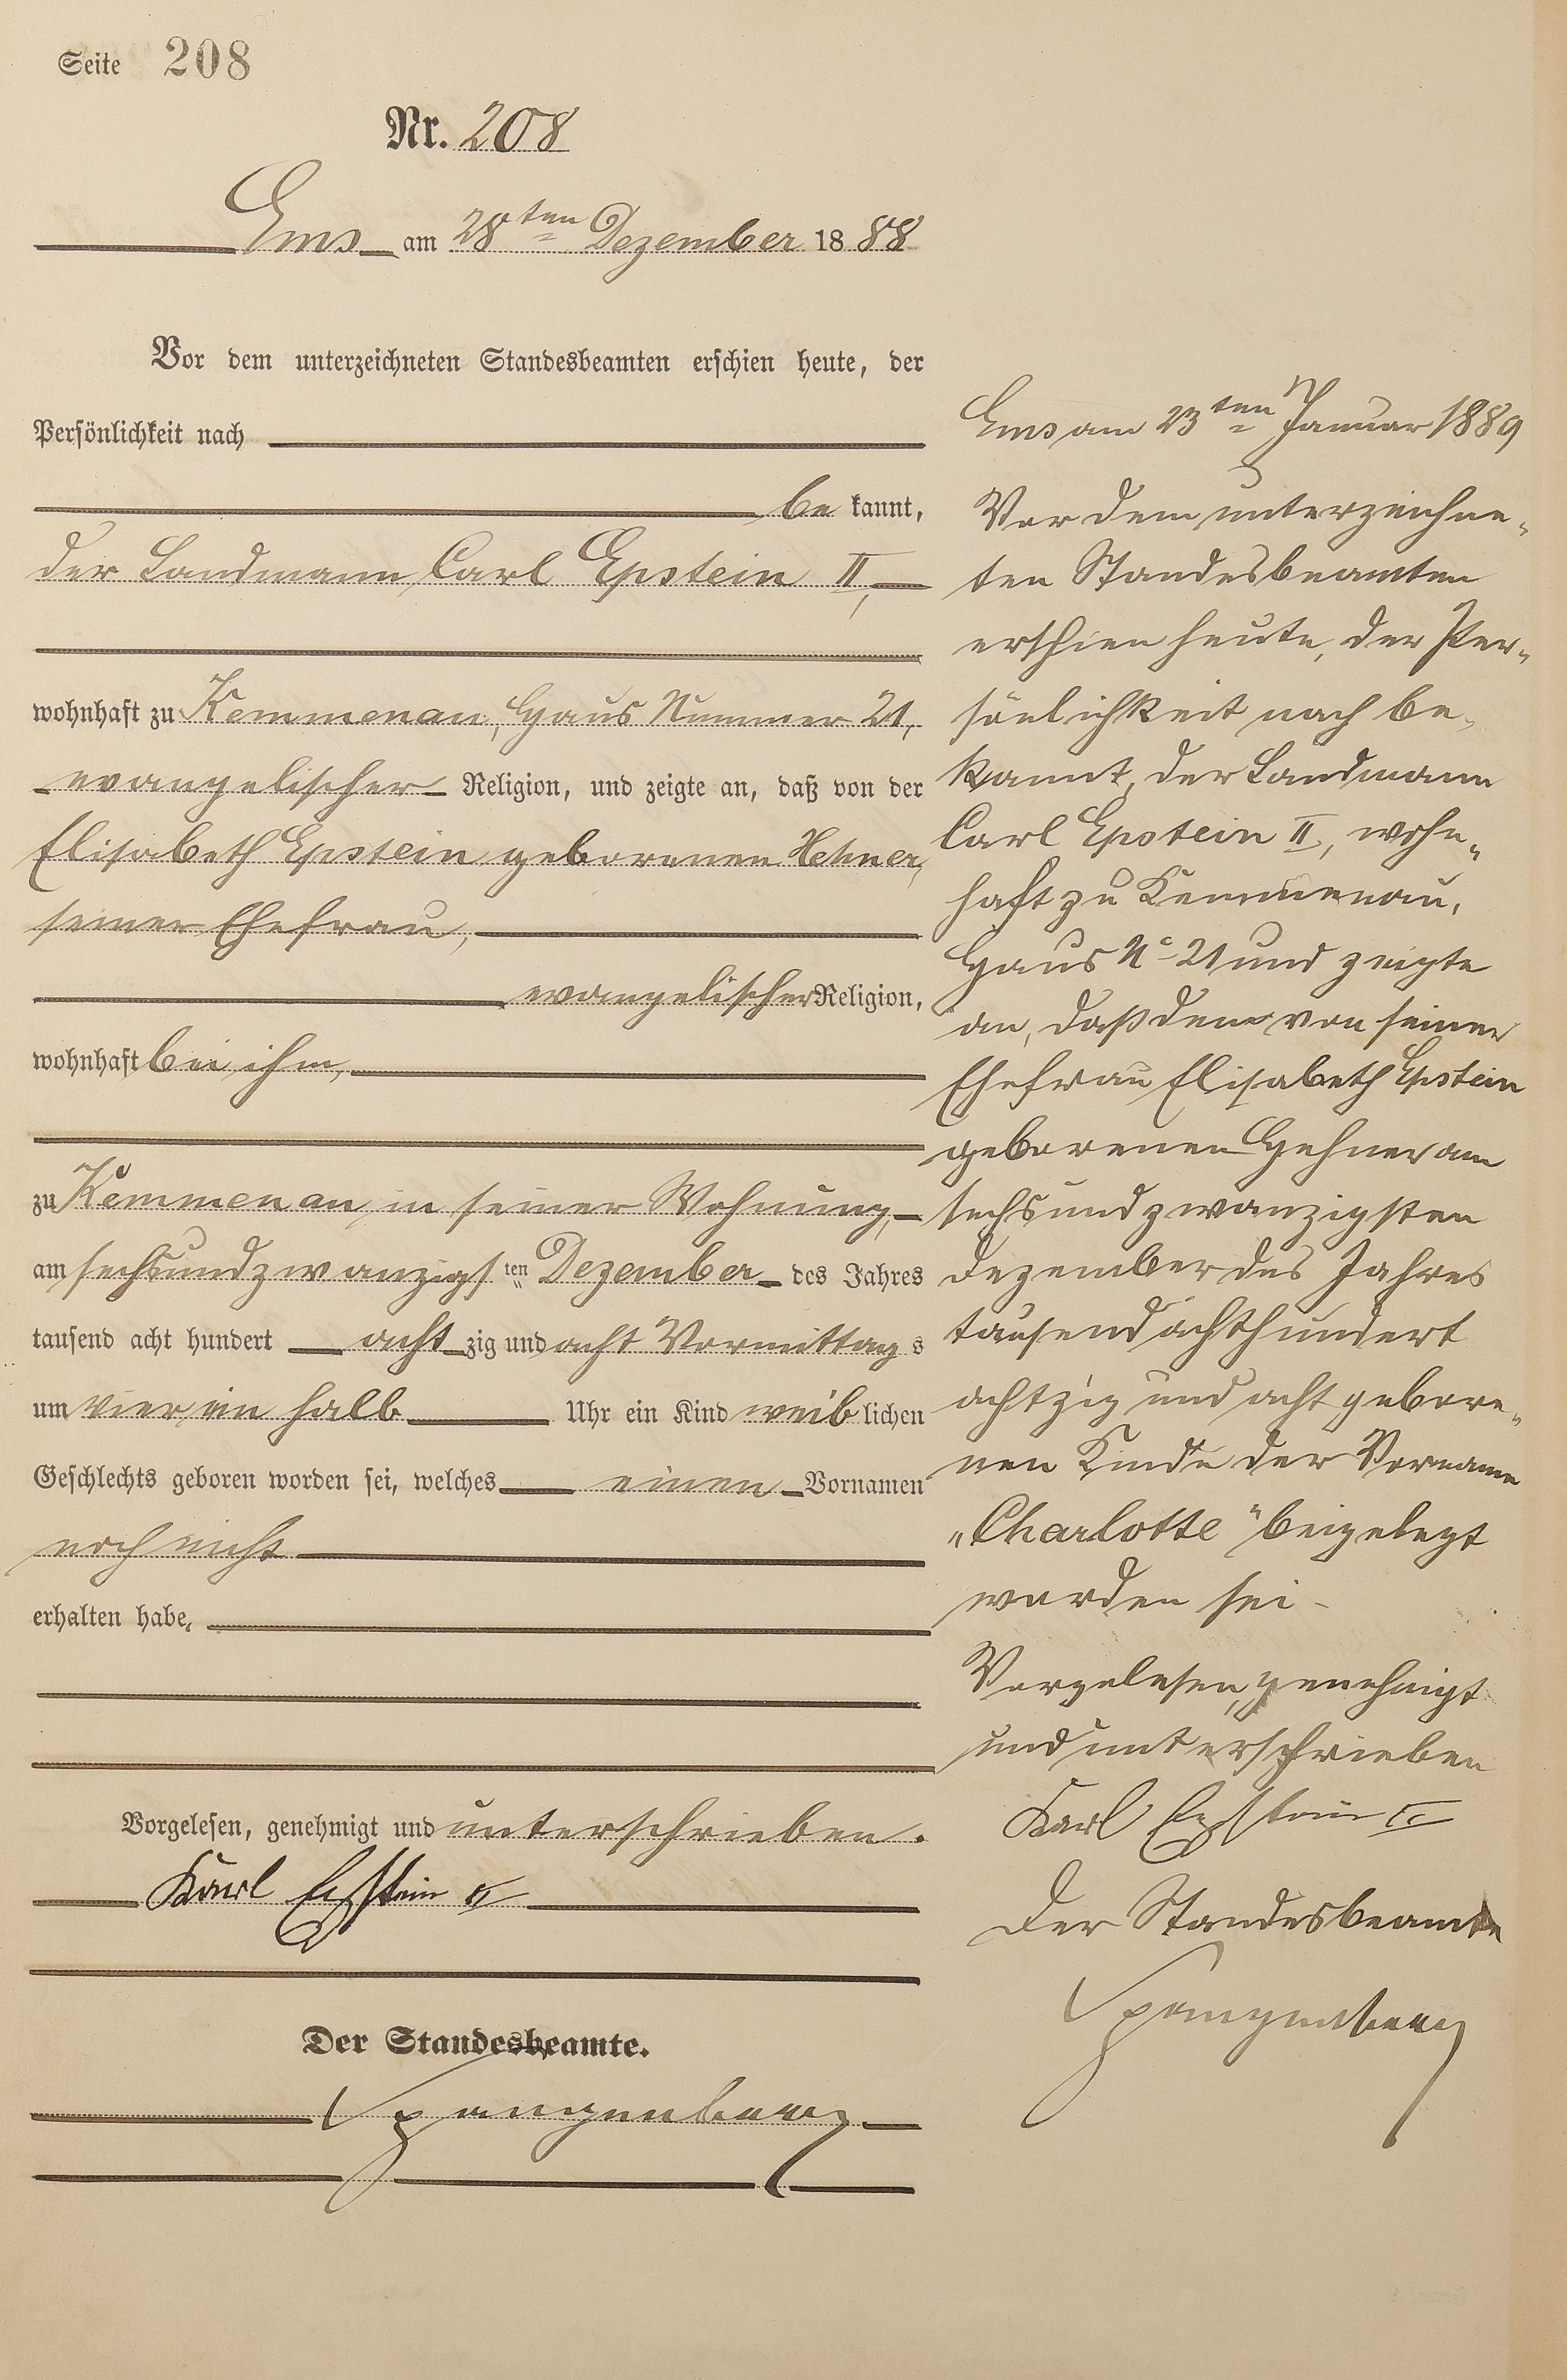 Seite 208
Nr. 208
Ems am 28ten Dezember 1888
Vor dem unterzeichneten Standesbeamten erschien heute, der
Persönlichkeit nach
bekannt,
der Landmann Carl Epstein II,
wohnhaft zu Kemmenau, Haus Nummer 21,
evangelischer Religion, und zeigte an, daß von der
Elisabeth Epstein geborenen Hehner,
seiner Ehefrau,
evangelischer Religion,
wohnhaft bei ihm,
zu Kemmenau, in seiner Wohnung,
am sechsundzwanzigsten Dezember des Jahres
tausend acht hundert achtzig und acht Vormittags
um vier ein halb Uhr ein Kind weiblichen
Geschlechts geboren worden sei, welches einen Vornamen
noch nicht
erhalten habe,
Vorgelesen, genehmigt und unterschrieben.
Karl Epstein II
Der Standesbeamte.
Spangenberg
Ems am 23ten Januar 1889
Vor dem unterzeichne-
ten Standesbeamten
erschien heute, der Per-
sönlichkeit nach be-
kannt, der Landmann
Carl Epstein II, wohn-
haft zu Kemmenau,
Haus No 21 und zeigte
an, daß dem von seiner
Ehefrau Elisabeth Epstein
geborenen Hehner am
sechsundzwanzigsten
Dezember des Jahres
tausend achthundert
achtzig und acht gebore-
nen Kinde der Vorname
„Charlotte" beigelegt
worden sei -
Vorgelesen, genehmigt
und unterschrieben
Karl Epstein II
Der Standesbeamte
Spangenberg